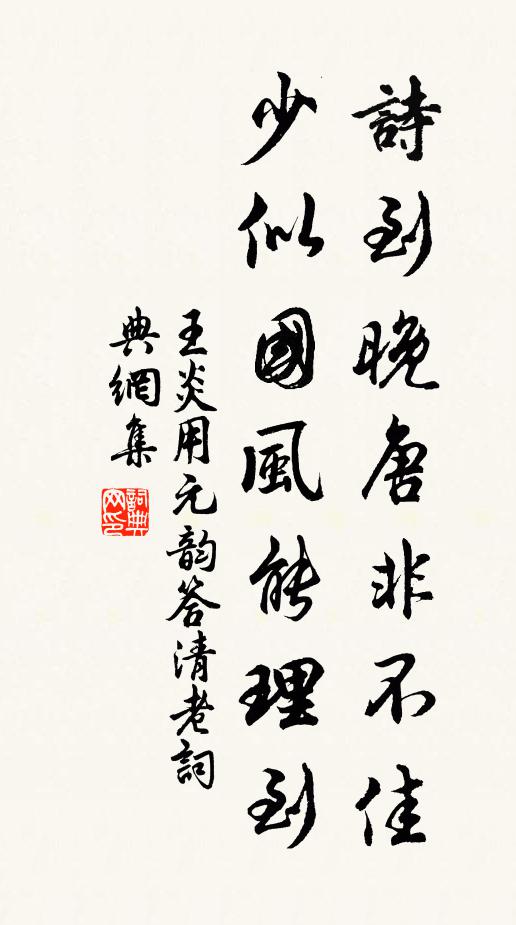 詩到晚唐非不佳
少似國風能理到
王炎用元韵答清老詞
典網集
詞典
网印